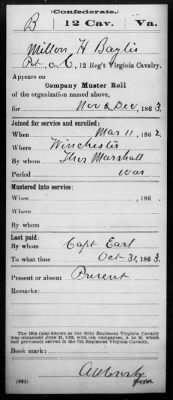 Confederate.
B 12 Cav. Va.
Milton H Baylis
Pvt, Co. C, 12 Reg't Virginia Cavalry.
Appears on
Company Muster Roll
of the organization named above,
for Nov & Dec, 1863.
Joined for service and enrolled:
When Mar 11, 1862.
Where Winchester
By whom Thos Marshall
Period war
Mustered into service:
When , 186 .
Where
By whom
Period
Last paid:
By whom Capt Earl
To what time Oct 31, 1863.
Present or absent Present
Remarks:
The 12th (also known as the 10th) Regiment Virginia Cavalry
was organized June 21, 1862, with ten companies, A to K, which
had previously served in the 7th Regiment Virginia Cavalry.
Book mark:
(642) Copyist.